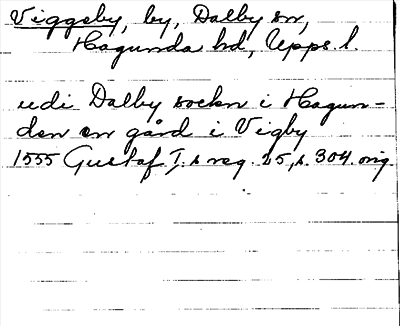 Viggeby, by, Dalby sn,
Hagunda hd, Upps. l.
udi Dalby sockn i Hagun-
den en gård i Vigby
1555 Gustaf I:s reg. 25, s. 304. orig.